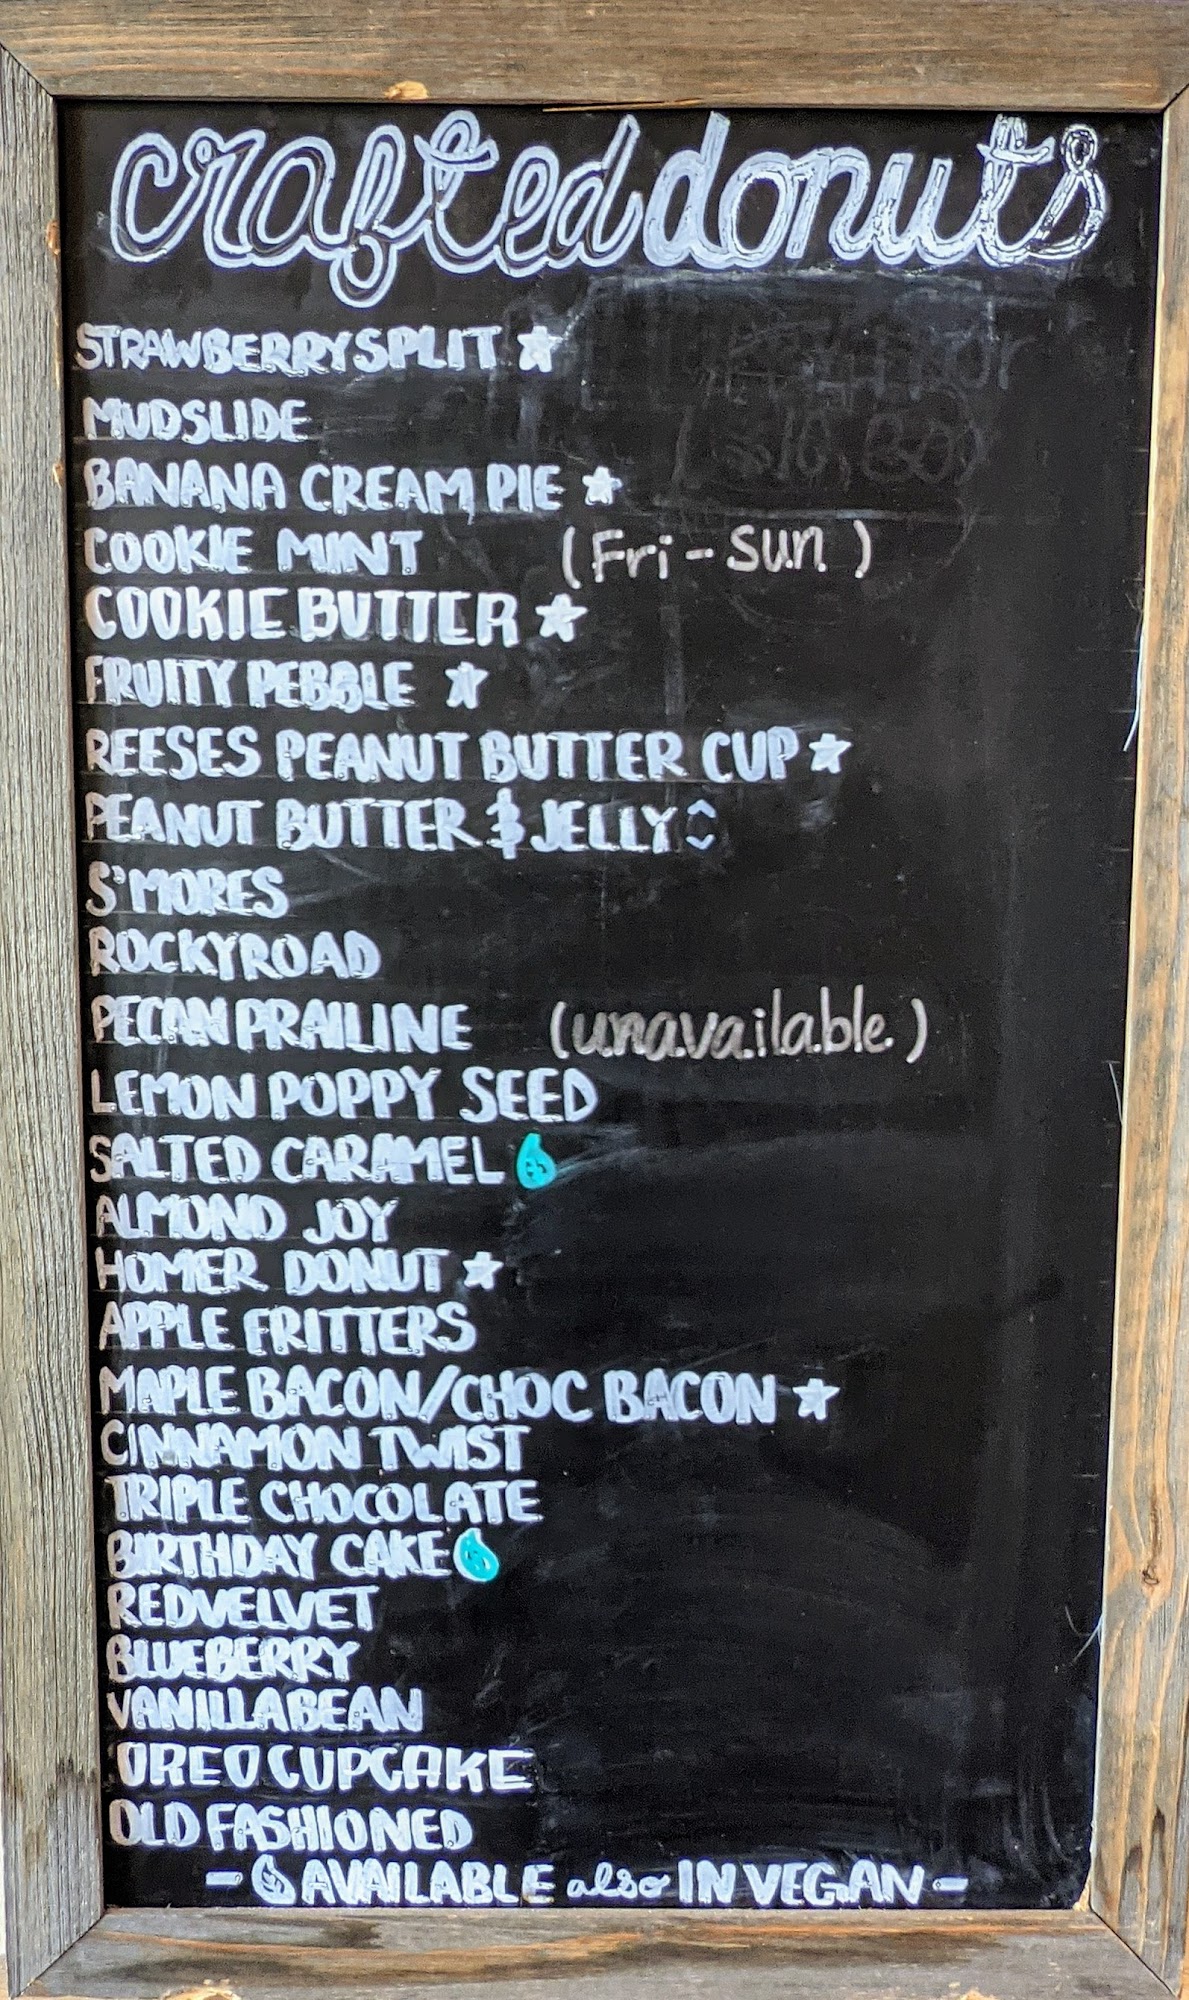 crafted donuts
STRAWBERRY SPLIT ★
MUDSLIDE
BANANA CREAM PIE ★
COOKIE MINT (Fri - Sun)
COOKIE BUTTER ★
FRUITY PEBBLE ★
REESES PEANUT BUTTER CUP ★
PEANUT BUTTER & JELLY
S'MORES
ROCKY ROAD
PECAN PRAILINE (unavailable)
LEMON POPPY SEED
SALTED CARAMEL
ALMOND JOY
HOMER DONUT ★
APPLE FRITTERS
MAPLE BACON/CHOC BACON ★
CINNAMON TWIST
TRIPLE CHOCOLATE
BIRTHDAY CAKE
RED VELVET
BLUEBERRY
VANILLA BEAN
OREO CUPCAKE
OLD FASHIONED
- AVAILABLE also IN VEGAN -